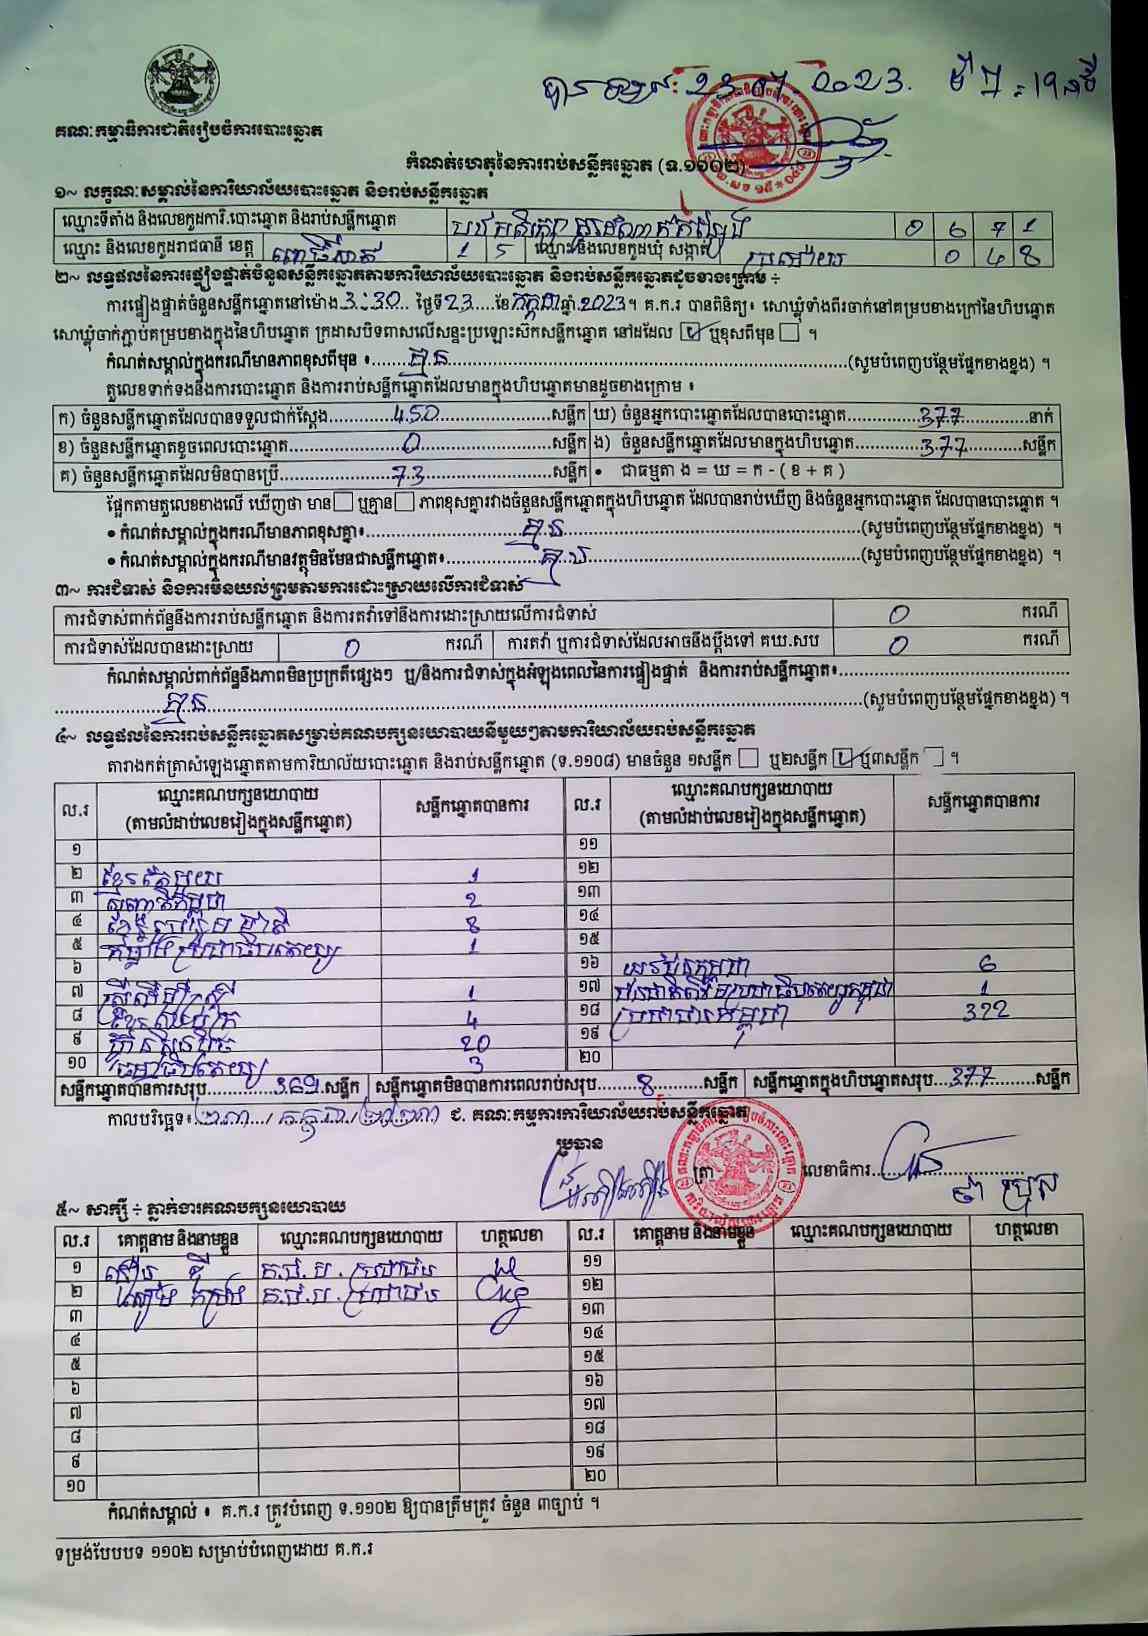 23 2023.
គណៈកម្មាធិការជាតិរៀបចំការបោះឆ្នោត
កំណត់ហេតុនៃការរាប់សន្លឹកឆ្នោត (ទ.១១០២)
១~ លក្ខណៈសម្គាល់នៃការិយាល័យបោះឆ្នោត និងរាប់សន្លឹកឆ្នោត
ឈ្មោះទីតាំង និងលេខកូដការិ.បោះឆ្នោត និងរាប់សន្លឹកឆ្នោត 0 6 7 1
ឈ្មោះ និងលេខកូដរាជធានី ខេត្ត ពោធិ៍សាត់ 1 5 ឈ្មោះ និងលេខកូដឃុំ សង្កាត់ 0 4 8
២~ លទ្ធផលនៃការផ្ទៀងផ្ទាត់ចំនួនសន្លឹកឆ្នោតតាមការិយាល័យបោះឆ្នោត និងរាប់សន្លឹកឆ្នោតដូចខាងក្រោម ÷
ការផ្ទៀងផ្ទាត់ចំនួនសន្លឹកឆ្នោតនៅម៉ោង 3:30 ថ្ងៃទី 23 ខែ កក្កដា ឆ្នាំ 2023 ។ គ.ក.រ បានពិនិត្យ៖ សោឃ្លុំទាំងពីរចាក់នៅគម្របខាងក្រៅនៃហិបឆ្នោត
សោឃ្លុំចាក់ភ្ជាប់គម្របខាងក្នុងនៃហិបឆ្នោត ក្រដាសបិទពាសលើសន្ទះប្រឡោះស៊កសន្លឹកឆ្នោត នៅដដែល ឬខុសពីមុន ។
កំណត់សម្គាល់ក្នុងករណីមានភាពខុសពីមុន ៖ គ្មាន (សូមបំពេញបន្ថែមផ្នែកខាងខ្នង) ។
តួលេខទាក់ទងនឹងការបោះឆ្នោត និងការរាប់សន្លឹកឆ្នោតដែលមានក្នុងហិបឆ្នោតមានដូចខាងក្រោម ៖
ក) ចំនួនសន្លឹកឆ្នោតដែលបានទទួលជាក់ស្តែង 450 សន្លឹក ឃ) ចំនួនអ្នកបោះឆ្នោតដែលបានបោះឆ្នោត 377 នាក់
ខ) ចំនួនសន្លឹកឆ្នោតខូចពេលបោះឆ្នោត 0 សន្លឹក ង) ចំនួនសន្លឹកឆ្នោតដែលមានក្នុងហិបឆ្នោត 377 សន្លឹក
គ) ចំនួនសន្លឹកឆ្នោតដែលមិនបានប្រើ 73 សន្លឹក • ជាធម្មតា ង = ឃ = ក - ( ខ + គ )
ផ្អែកតាមតួលេខខាងលើ ឃើញថា មាន ឬគ្មាន ភាពខុសគ្នារវាងចំនួនសន្លឹកឆ្នោតក្នុងហិបឆ្នោត ដែលបានរាប់ឃើញ និងចំនួនអ្នកបោះឆ្នោត ដែលបានបោះឆ្នោត ។
• កំណត់សម្គាល់ក្នុងករណីមានភាពខុសគ្នា៖ គ្មាន (សូមបំពេញបន្ថែមផ្នែកខាងខ្នង) ។
• កំណត់សម្គាល់ក្នុងករណីមានវត្ថុមិនមែនជាសន្លឹកឆ្នោត៖ គ្មាន (សូមបំពេញបន្ថែមផ្នែកខាងខ្នង) ។
៣~ ការជំទាស់ និងការមិនយល់ព្រមតាមការដោះស្រាយលើការជំទាស់
ការជំទាស់ពាក់ព័ន្ធនឹងការរាប់សន្លឹកឆ្នោត និងការតវ៉ាទៅនឹងការដោះស្រាយលើការជំទាស់ 0 ករណី
ការជំទាស់ដែលបានដោះស្រាយ 0 ករណី ការតវ៉ា ឬការជំទាស់ដែលអាចនឹងប្តឹងទៅ គឃ.សប 0 ករណី
កំណត់សម្គាល់ពាក់ព័ន្ធនឹងភាពមិនប្រក្រតីផ្សេងៗ ឬ/និងការជំទាស់ក្នុងអំឡុងពេលនៃការផ្ទៀងផ្ទាត់ និងការរាប់សន្លឹកឆ្នោត៖
គ្មាន (សូមបំពេញបន្ថែមផ្នែកខាងខ្នង) ។
៤~ លទ្ធផលនៃការរាប់សន្លឹកឆ្នោតសម្រាប់គណបក្សនយោបាយនីមួយៗតាមការិយាល័យរាប់សន្លឹកឆ្នោត
តារាងកត់ត្រាសំឡេងឆ្នោតតាមការិយាល័យបោះឆ្នោត និងរាប់សន្លឹកឆ្នោត (ទ.១១០៨) មានចំនួន ១សន្លឹក ឬ២សន្លឹក ឬ៣សន្លឹក ។
ល.រ ឈ្មោះគណបក្សនយោបាយ (តាមលំដាប់លេខរៀងក្នុងសន្លឹកឆ្នោត) សន្លឹកឆ្នោតបានការ ល.រ ឈ្មោះគណបក្សនយោបាយ (តាមលំដាប់លេខរៀងក្នុងសន្លឹកឆ្នោត) សន្លឹកឆ្នោតបានការ
១ ១១
២ ខ្មែរតែមួយ 1 ១២
៣ 2 ១៣
៤ ខ្មែររួបរួមជាតិ 8 ១៤
៥ កម្លាំងប្រជាធិបតេយ្យ 1 ១៥
៦ ១៦ យុវជនកម្ពុជា 6
៧ ស្ត្រីដើម្បីស្ត្រី 1 ១៧ 1
៨ 4 ១៨ ប្រជាជនកម្ពុជា 322
៩ ហ្វ៊ុនស៊ិនប៉ិច 20 ១៩
១០ ធម្មាធិបតេយ្យ 3 ២០
សន្លឹកឆ្នោតបានការសរុប 369 សន្លឹក សន្លឹកឆ្នោតមិនបានការពេលរាប់សរុប 8 សន្លឹក សន្លឹកឆ្នោតក្នុងហិបឆ្នោតសរុប 377 សន្លឹក
កាលបរិច្ឆេទ៖ ២៣ / កក្កដា / ២០២៣ ជ. គណៈកម្មការការិយាល័យរាប់សន្លឹកឆ្នោត
ប្រធាន
ត្រា លេខាធិការ
៥~ សាក្សី ÷ ភ្នាក់ងារគណបក្សនយោបាយ
ល.រ គោត្តនាម និងនាមខ្លួន ឈ្មោះគណបក្សនយោបាយ ហត្ថលេខា ល.រ គោត្តនាម និងនាមខ្លួន ឈ្មោះគណបក្សនយោបាយ ហត្ថលេខា
១ ១១
២ ១២
៣ ១៣
៤ ១៤
៥ ១៥
៦ ១៦
៧ ១៧
៨ ១៨
៩ ១៩
១០ ២០
កំណត់សម្គាល់ ៖ គ.ក.រ ត្រូវបំពេញ ទ.១១០២ ឱ្យបានត្រឹមត្រូវ ចំនួន ៣ច្បាប់ ។
ទម្រង់បែបបទ ១១០២ សម្រាប់បំពេញដោយ គ.ក.រ